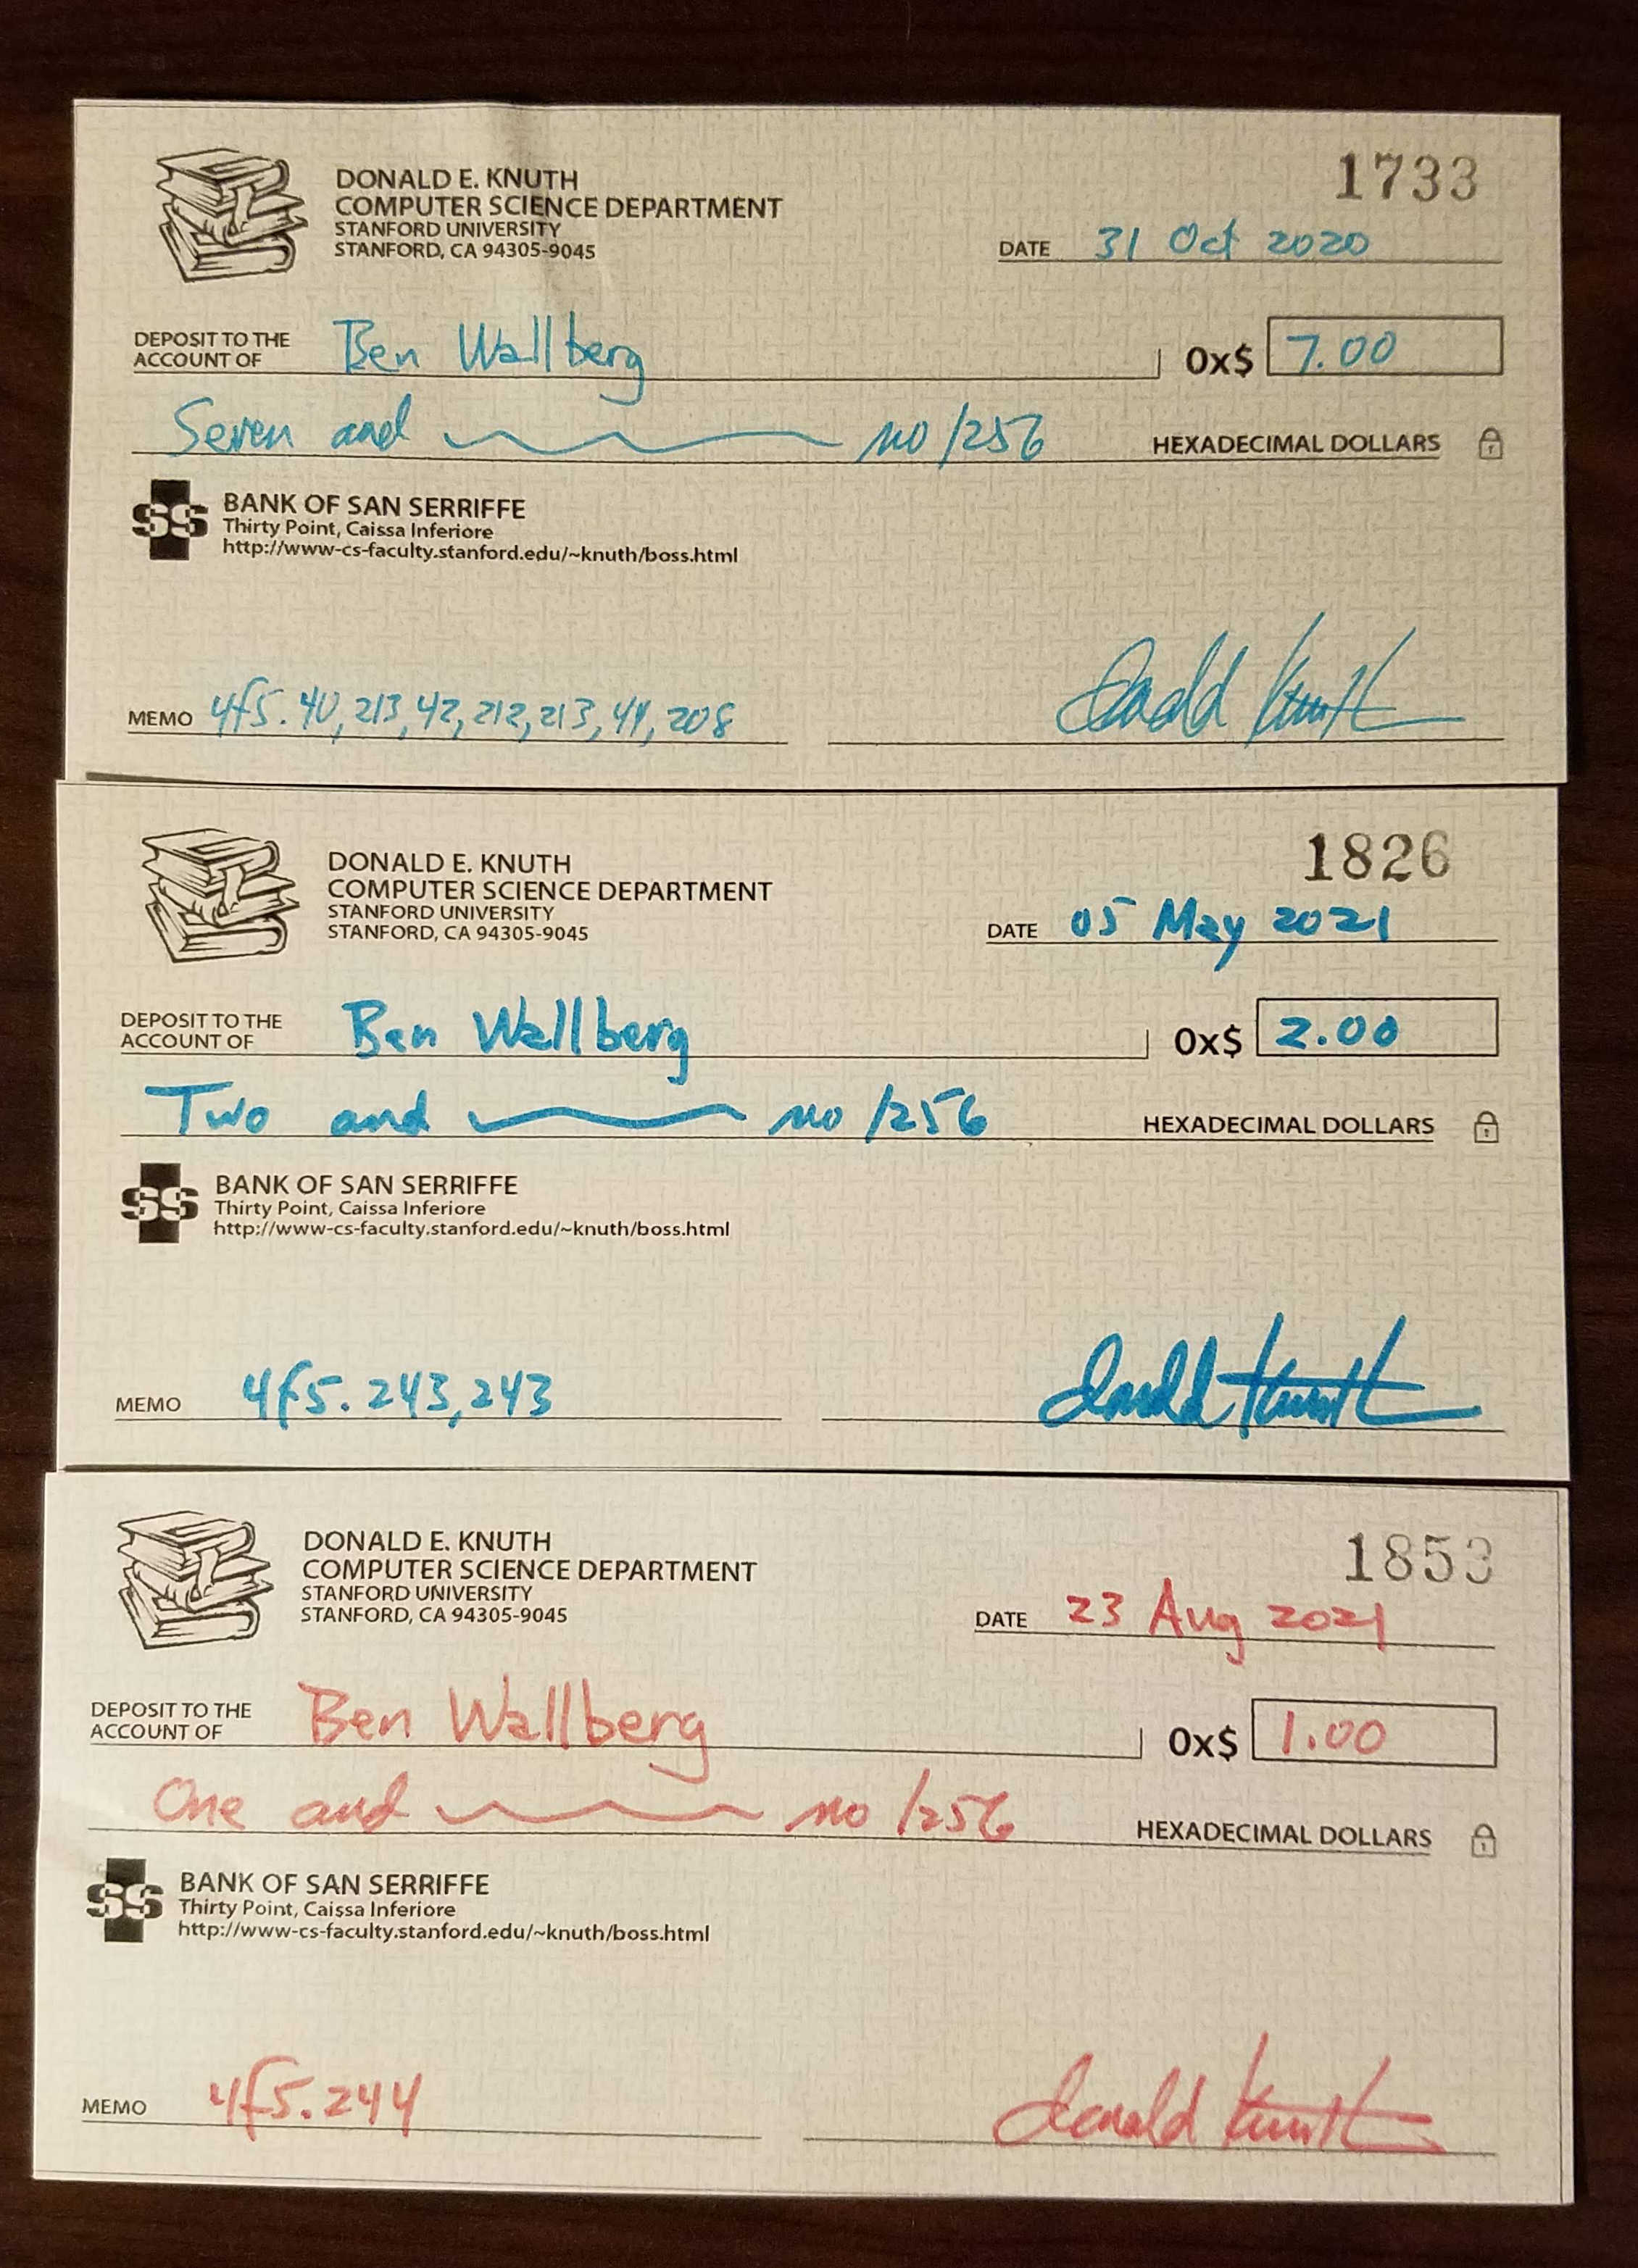 1733
DONALD E. KNUTH
COMPUTER SCIENCE DEPARTMENT
STANFORD UNIVERSITY
STANFORD, CA 94305-9045
DATE 31 Oct 2020
DEPOSIT TO THE
ACCOUNT OF Ben Wallberg 0x$ 7.00
Seven and no/256 HEXADECIMAL DOLLARS
SS BANK OF SAN SERRIFFE
Thirty Point, Caissa Inferiore
http://www-cs-faculty.stanford.edu/~knuth/boss.html
MEMO 4f5.40,213,42,212,213,41,208 Donald Knuth
1826
DONALD E. KNUTH
COMPUTER SCIENCE DEPARTMENT
STANFORD UNIVERSITY
STANFORD, CA 94305-9045
DATE 05 May 2021
DEPOSIT TO THE
ACCOUNT OF Ben Wallberg 0x$ 2.00
Two and no/256 HEXADECIMAL DOLLARS
SS BANK OF SAN SERRIFFE
Thirty Point, Caissa Inferiore
http://www-cs-faculty.stanford.edu/~knuth/boss.html
MEMO 4f5.243,243 Donald Knuth
1853
DONALD E. KNUTH
COMPUTER SCIENCE DEPARTMENT
STANFORD UNIVERSITY
STANFORD, CA 94305-9045
DATE 23 Aug 2021
DEPOSIT TO THE
ACCOUNT OF Ben Wallberg 0x$ 1.00
One and no/256 HEXADECIMAL DOLLARS
SS BANK OF SAN SERRIFFE
Thirty Point, Caissa Inferiore
http://www-cs-faculty.stanford.edu/~knuth/boss.html
MEMO 4f5.244 Donald Knuth